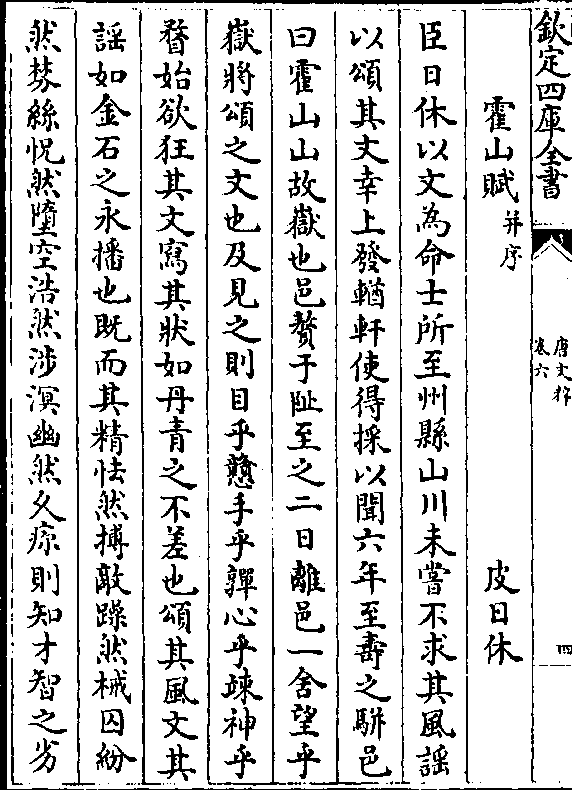 欽定四庫全書
唐文粹
卷六
四
霍山賦并序
皮日休
臣日休以文為命士所至州縣山川未嘗不求其風謡
以頌其文幸上發輶軒使得採以聞六年至壽之駢邑
曰霍山山故嶽也邑贅于阯至之二日離邑一舍望乎
嶽將頌之文也及見之則目乎戇手乎嚲心乎竦神乎
瞀始欲狂其文寫其狀如丹青之不差也頌其風文其
謡如金石之永播也既而其精怯然搏敵躁然械囚紛
然棼絲怳然墮空浩然涉溟幽然久痾則知才智之劣